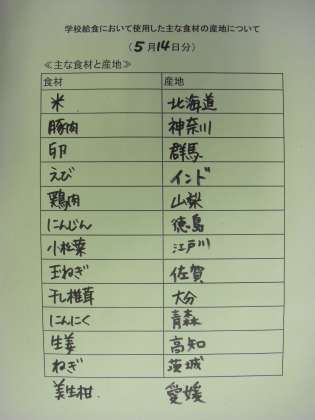 学校給食において使用した主な食材の産地について
(5月14日分)
≪主な食材と産地≫
食材 産地
米 北海道
豚肉 神奈川
卵 群馬
えび インド
鶏肉 山梨
にんじん 徳島
小松菜 江戸川
玉ねぎ 佐賀
干し椎茸 大分
にんにく 青森
生姜 高知
ねぎ 茨城
美生柑 愛媛